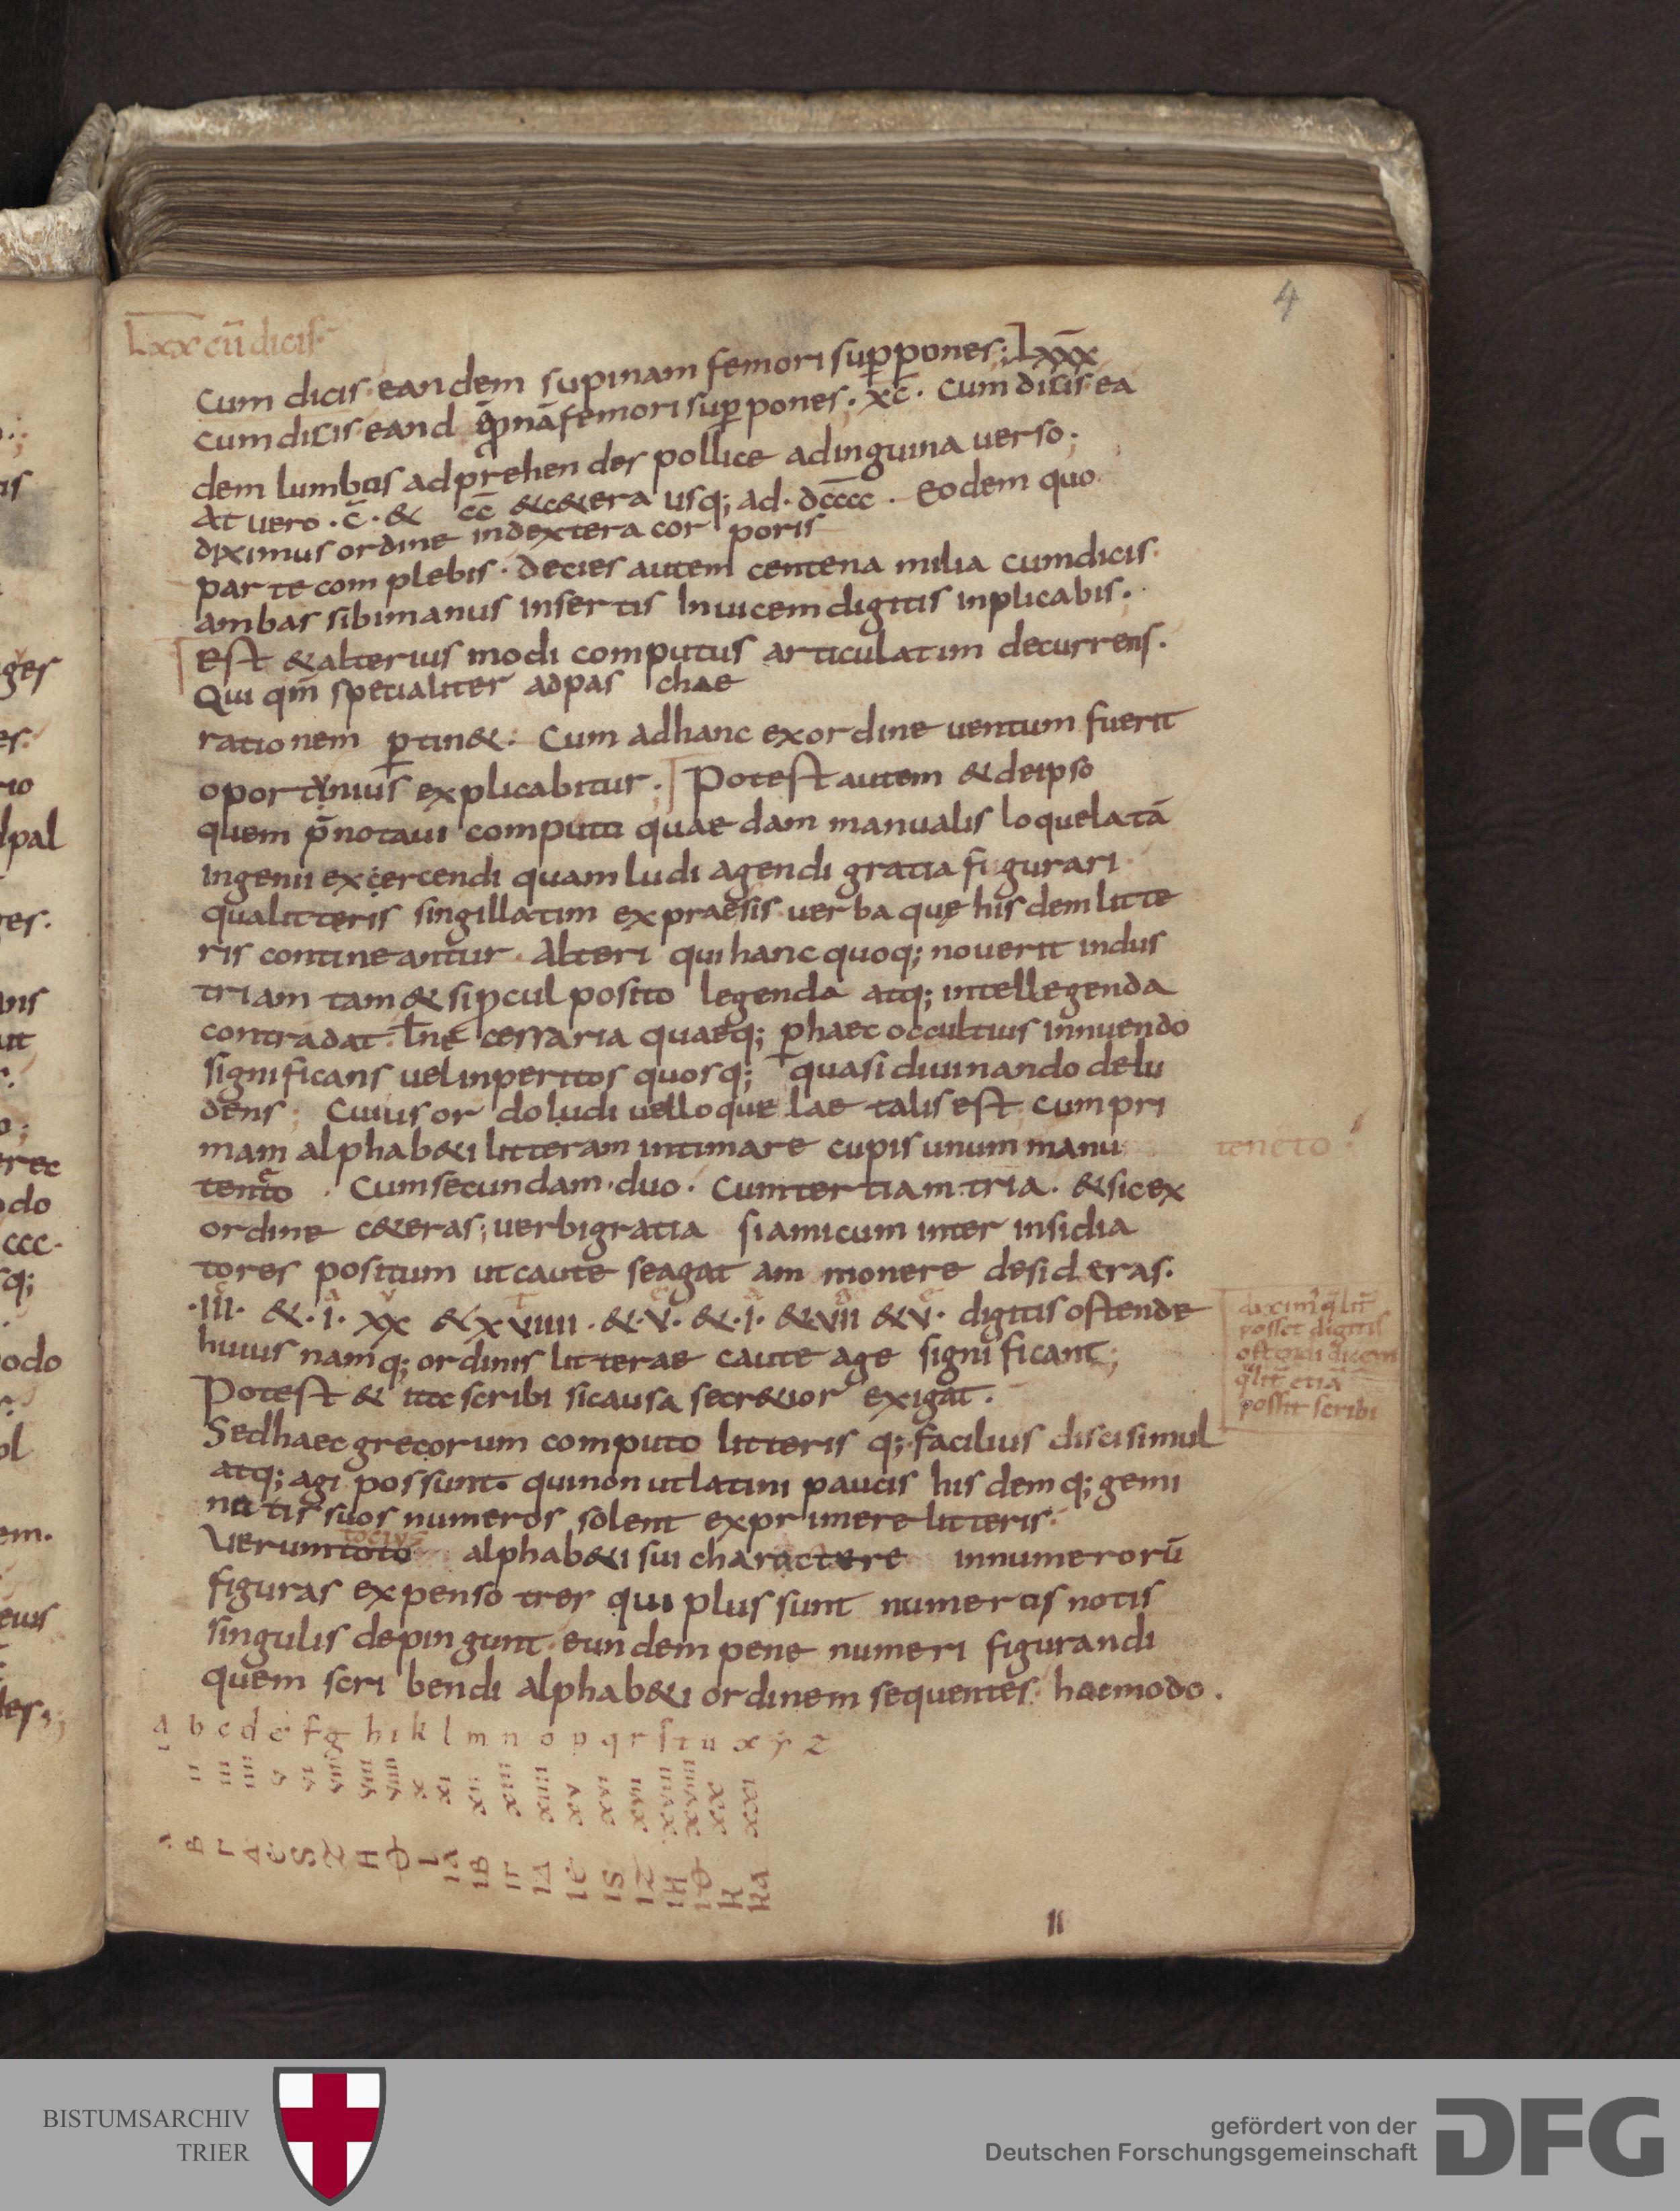 4
Lxx cū dicis
cum dicis eandem supinam femori suppones; Lxxx
cum dicis eand pnā femori suppones. xc. cum dicis ea
dem lumbus adprehendes pollice adinguina uerso;
At uero . c̄ . & cc̄ &c&era usq; ad . dc̄ccc . Eodem quo
diximus ordine indextera cor poris
par te com plebis . decies autem centena milia cumdicis
ambas sibimanus insertis Inuicem digitis inplicabis.
Est & alterius modi computus articulatim decurrens.
Qui qm̄ specialiter adpas chae
rationem ptin&. Cum adhanc exordine uentum fuerit
oportunius explicabitur. Potest autem & deipso
quem p̄notaui computu quae dam manualis loquela tā
ingenii excercendi quam ludi agendi gratia figurari
qualitteris singillatim expraesis uerba quę hisdem litte
ris contineantur. Alteri qui hanc quoq; nouerit indus
triam tam & si procul posito legenda atq; intellegenda
contradat. l̄ne cessaria quaeq; phaec occultius innuendo
significans uel inperitos quosq; quasi diuinando delu
dens; Cuius or do ludi uelloque lae talis est, cum pri
mam alphab&i litteram intimare cupis unum manu
teneto
tento . Cumsecundam duo . Cumtertiam tria . & sic ex
ordine c&eras; uerbi gratia si amicum inter insidia
tores positum ut caute se agat am monere desideras.
.III. &. I. xx & xviiii. &. v. &. I. & vii & v. digitis ostende
huius namq; ordinis litterae caute age significant;
diximꝰ q̄lit̄
posset digitis
ostendi dicem
q̄lit̄ etiā
possit scribi
Potest & itae scribi si causa secr&ior exigat.
Sed haec grecorum computo litteris q; facilius disci simul
atq; agi possunt. qui non ut latini paucis hisdemq; gemi
natis suos numeros solent exprimere litteris.
tociꝰ
Uerum toto alphab&i sui charactere innumerorū
figuras expenso tres qui plus sunt numeris notis
singulis depingunt. eundem pene numeri figurandi
quem scri bendi alphab&i ordinem sequentes hocmodo.
a b c d e f g h i k l m n o p q r s t u x y z
I II III IIII V VI VII VIII VIIII X XI XII XIII XIIII XV XVI XVII XVIII XVIIII XX XXI
A B Γ Δ Є S Z H Θ I IA IB IΓ IΔ IЄ IS IZ IH IΘ K KA
II
BISTUMSARCHIV
TRIER
gefördert von der
Deutschen Forschungsgemeinschaft
DFG